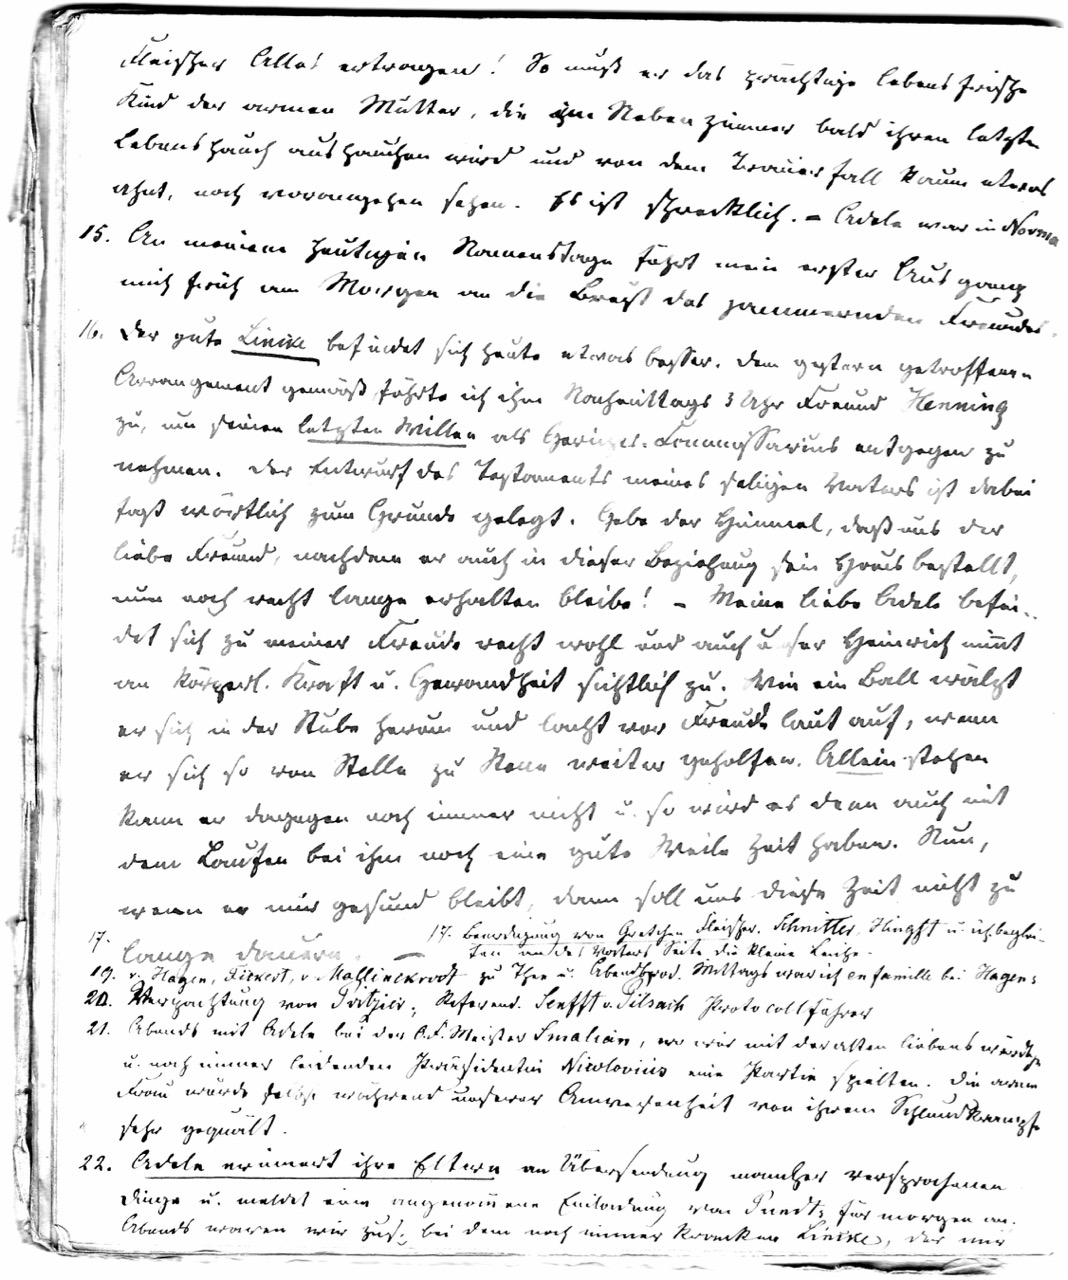 Fleischer Alles ertragen! So muß er das prächtige lebensfrische
Kind der armen Mutter, die im Nebenzimmer bald ihren letzten
Lebenshauch aushauchen wird und von dem Trauerfall kaum etwas
ahnt, noch vorangehen sehen. Es ist schrecklich. – Adele war in Norma
15. An meinem heutigen Namenstage führt mein erster Ausgang
mich früh am Morgen an die Brust des jammernden Freundes.
16. Der gute Linike befindet sich heute etwas besser. Dem gestern getroffenen
Arrangement gemäß führte ich ihm Nachmittags 3 Uhr Freund Henning
zu, um seinen letzten Willen als Gerichts-Commissarius entgegen zu
nehmen. Der Entwurf des Testaments meines seligen Vaters ist dabei
fast wörtlich zum Grunde gelegt. Gebe der Himmel, daß uns der
liebe Freund, nachdem er auch in dieser Beziehung sein Haus bestellt,
nun noch recht lange erhalten bleibe! – Meine liebe Adele befin-
det sich zu meiner Freude recht wohl und auch unser Heinrich nimt
an körperl. Kraft u. Gewandheit sichtlich zu. Wie ein Ball wälzt
er sich in der Stube herum und lacht vor Freude laut auf, wenn
er sich so von Stelle zu Stelle weiter geholfen. Allein stehen
kann er dagegen noch immer nicht u. so wird es denn auch mit
dem Laufen bei ihm noch eine gute Weile Zeit haben. Nun,
wenn er nur gesund bleibt, dann soll uns diese Zeit nicht zu
lange dauern. –
17. 17. Beerdigung von Gretchen Fleischer. Schnitter, Hingst u. ich beglei-
ten an des Vaters Seite die kleine Leiche.
19. v. Hagen, Fickert, v. Mallinckrodt zu Thee u. Abendbrod. Mittags war ich en famille bei Hagens
20. Verpachtung von Referend. Senfft v. Pilsach Protocollführer
21. Abends mit Adele bei der O.F. Meister Smalian, wo wir mit der alten liebenswürdigen
u. noch immer leidenden Präsidentin Nicolovius eine Partie spielten. Die arme
Frau wurde selbst während unserer Anwesenheit von ihrem Schlundkrampfe
sehr gequält.
22. Adele erinnert ihre Eltern an Übersendung mancher versprochenen
Dinge u. meldet eine angenommene Einladung von für morgen an.
Abends waren wir zus. bei dem noch immer kranken Linike, der mir